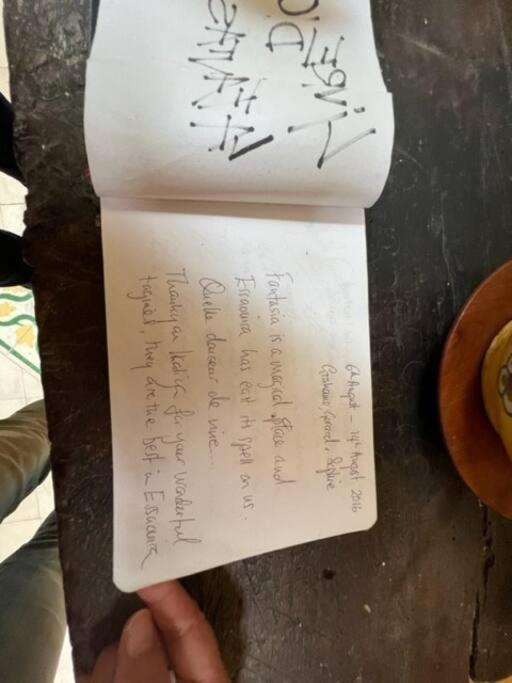 6th August - 14th August 2016
Grahame, Gerard & Sophie
Fantasia is a magical place and
Essaouira has cast its spell on us.
Quelle douceur de vivre...
Thankyou for your wonderful
tagines, they are the best in Essaouira